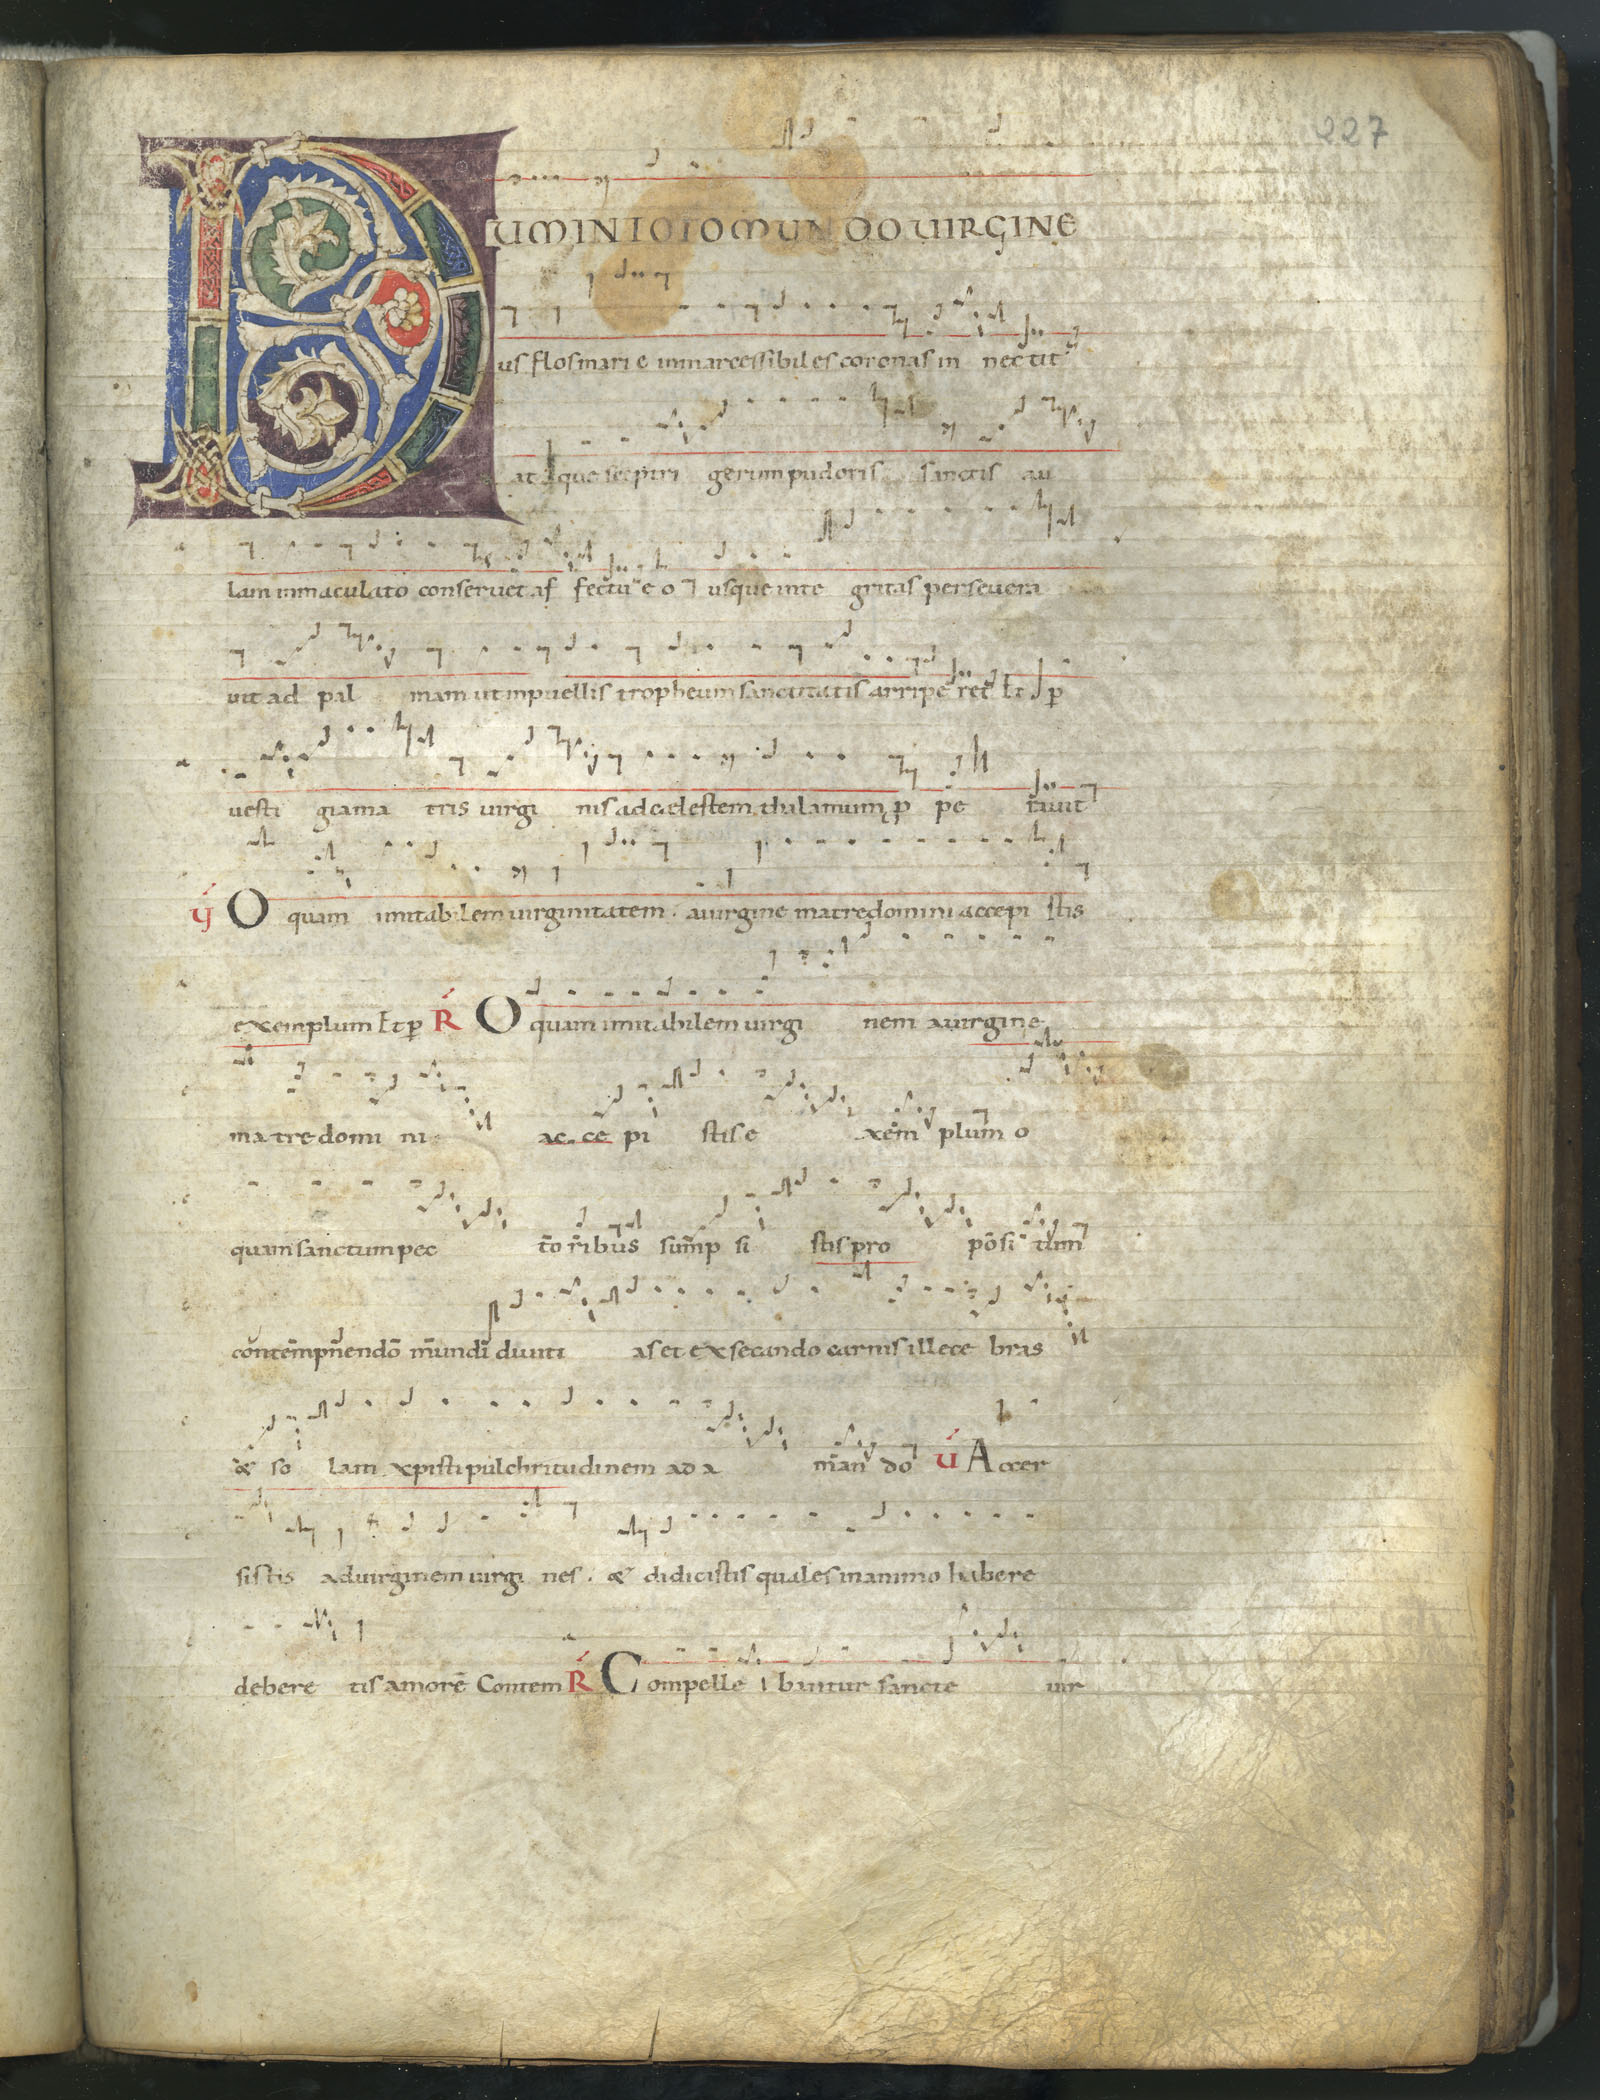 227
DUM IN TOTO MUNDO VIRGINE
us flos marie inmarcessibiles coronas in nectit
atque sceptri gerum pudoris sanctis au
lam inmaculato conseruet af fectu e o usque inte gritas perseuera
uit ad pal mam ut in puellis tropheum sanctitatis arripe ret Et p̄
uesti gia ma tris uirgi nis ad caelestem thalamum p pe tiuit
Ꝟ O quam imitabilem uirginitatem. a uirgine matre domini accepi stis
exemplum Et p̄ R O quam imitabilem uirgi nem a uirgine
matre domi ni ac ce pi stis e xem plum o
quam sanctum pec to ribus sump si stis pro posi tum
contempnendo mundi diuiti as et exsecando carnis illece bras
& so lam xpisti pulchritudinem ad a man do Ꝟ Accer
sistis ad uirginem uirgi nes. & didicistis quales in animo habere
debere tis amorē Contem R Compelle bantur sancte uir